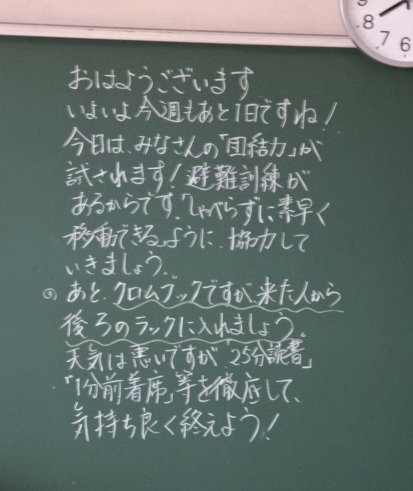 おはようございます
いよいよ今週もあと1日ですね!
今日は、みなさんの「団結力」が
試されます!避難訓練が
あるからです。しゃべらずに素早く
移動できるように、協力して
いきましょう。
あと、クロムブックですが、来た人から
後ろのラックに入れましょう。
天気は悪いですが「25分読書」
「1分前着席」等を徹底して、
気持ち良く終えよう!
8
7
6
5
4